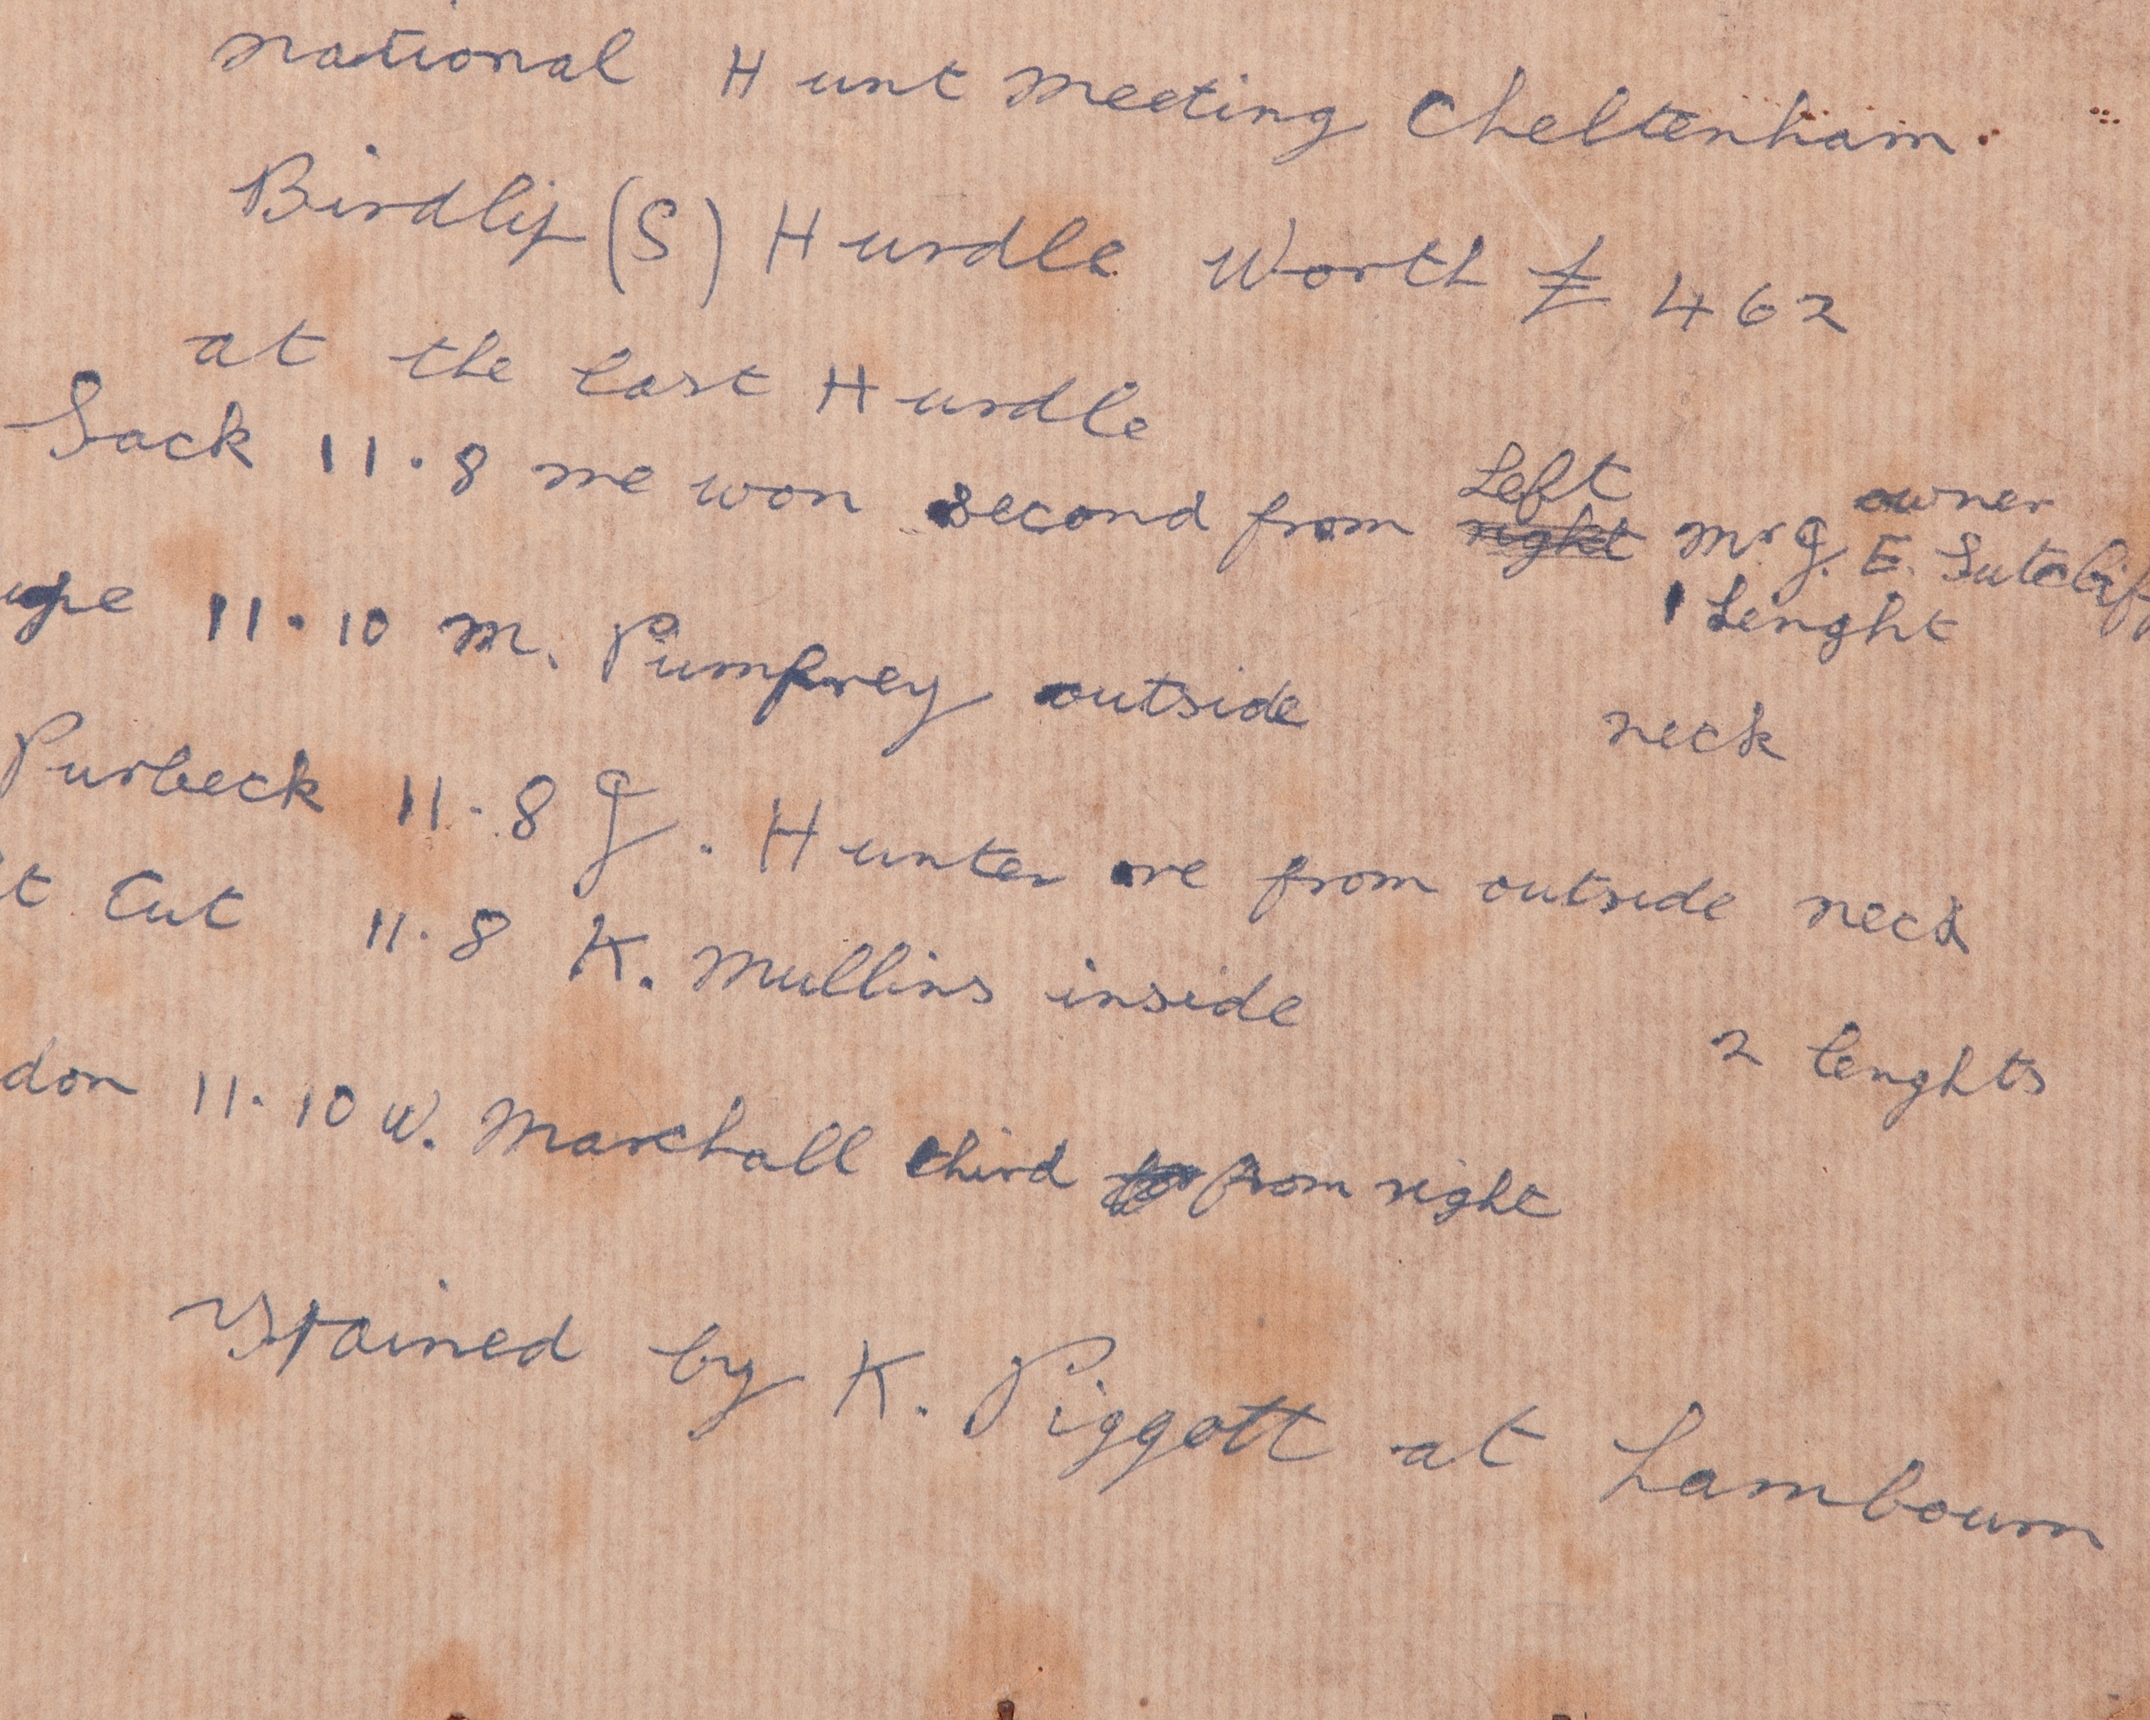 national Hunt meeting Cheltenham.
Birdlip (S) Hurdle Worth £ 462
at the last Hurdle
Sack 11.8 me won second from Left right Mr J. E. Sutcliff owner
1 Lenght
upe 11.10 M. Pumfrey outside neck
Purbeck 11-8 J. Hunter one from outside neck
t Cut 11.8 K. Mullins inside
2 lenghts
don 11.10 W. Marshall third from right
trained by K. Piggott at Lambourn